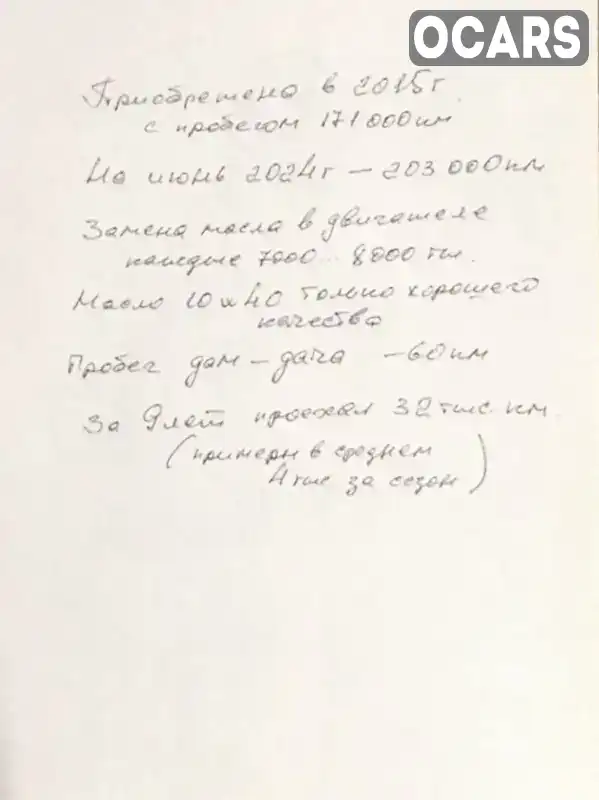 OCARS
Приобретено в 2015г.
с пробегом 171000км
На июнь 2024г – 203000км
Замена масла в двигателе
каждые 7000...8000 км.
Масло 10w40 только хорошего
качества
Пробег дом – дача – 60км
За 9лет проехал 32тыс. км.
(примерн в среднем
4тыс за сезон)